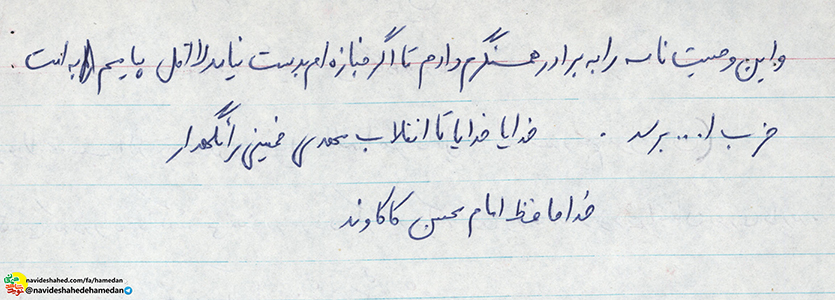 و این وصیت نامه را به برادر همسنگرم دادم تا اگر جنازه ام بدست نیامد لااقل پیامم به امت
حزب ا... برسد . خدایا خدایا تا انقلاب مهدی خمینی را نگهدار
خداحافظ امام محسن کاکاوند
navideshahed.com/fa/hamedan
@navideshahedehamedan